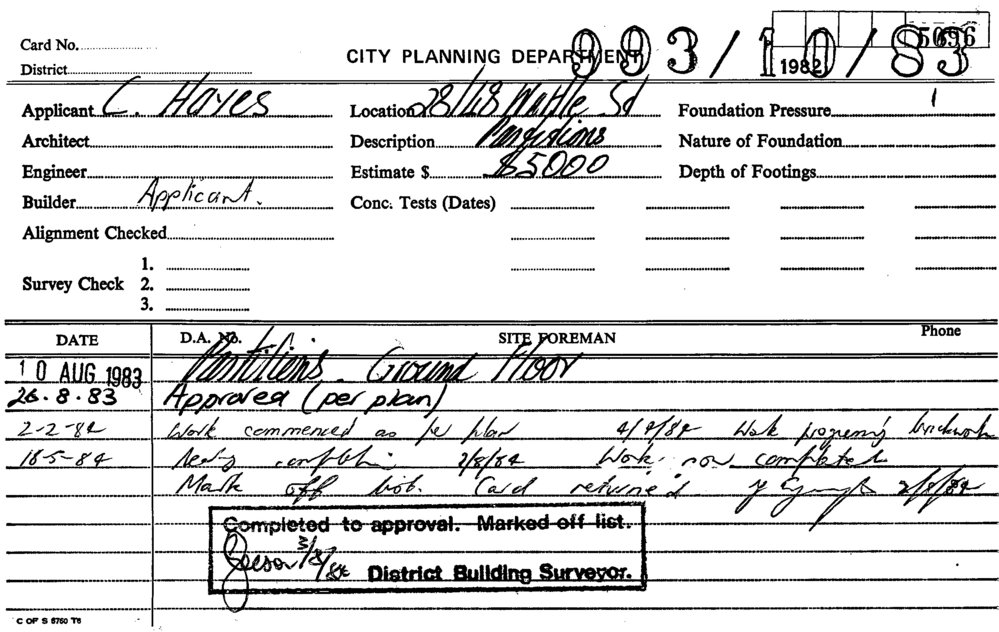 Card No.
CITY PLANNING DEPARTMENT
993/10/83
5096
1982
District
Applicant C. Hayes
Location 28/48 Wattle St
Foundation Pressure
Architect
Description Partitions
Nature of Foundation
Engineer
Estimate $ $5000
Depth of Footings
Builder Applicant.
Conc. Tests (Dates)
Alignment Checked
Survey Check
1.
2.
3.
DATE D.A. No. SITE FOREMAN Phone
10 AUG 1983 Partitions. Ground Floor
26.8.83 Approved (per plan)
2-2-84 Work commenced as per plan 4/4/84 Work progressing brickwork
18-5-84 Nearing completion 2/8/84 Work now completed
Mark off list. Card returned 2/8/84
Completed to approval. Marked off list.
3/8/84 District Building Surveyor.
C OF S 6760 T6